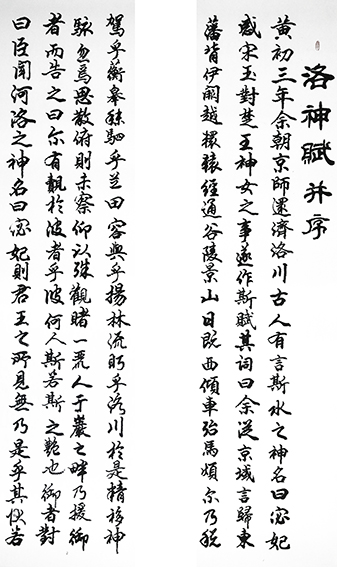 洛神賦并序
黄初三年余朝京師還濟洛川古人有言斯水之神名曰宓妃
感宋玉對楚王神女之事遂作斯賦其詞曰余從京域言歸東
藩背伊闕越轘轅經通谷陵景山日既西傾車殆馬煩尔乃税
駕乎蘅皋秣駟乎芝田容與乎揚林流眄乎洛川於是精移神
駭忽焉思散俯則未察仰以殊觀睹一麗人于巖之畔乃援御
者而告之曰尔有覿於彼者乎彼何人斯若斯之艷也御者對
曰臣聞河洛之神名曰宓妃則君王之所見無乃是乎其状若